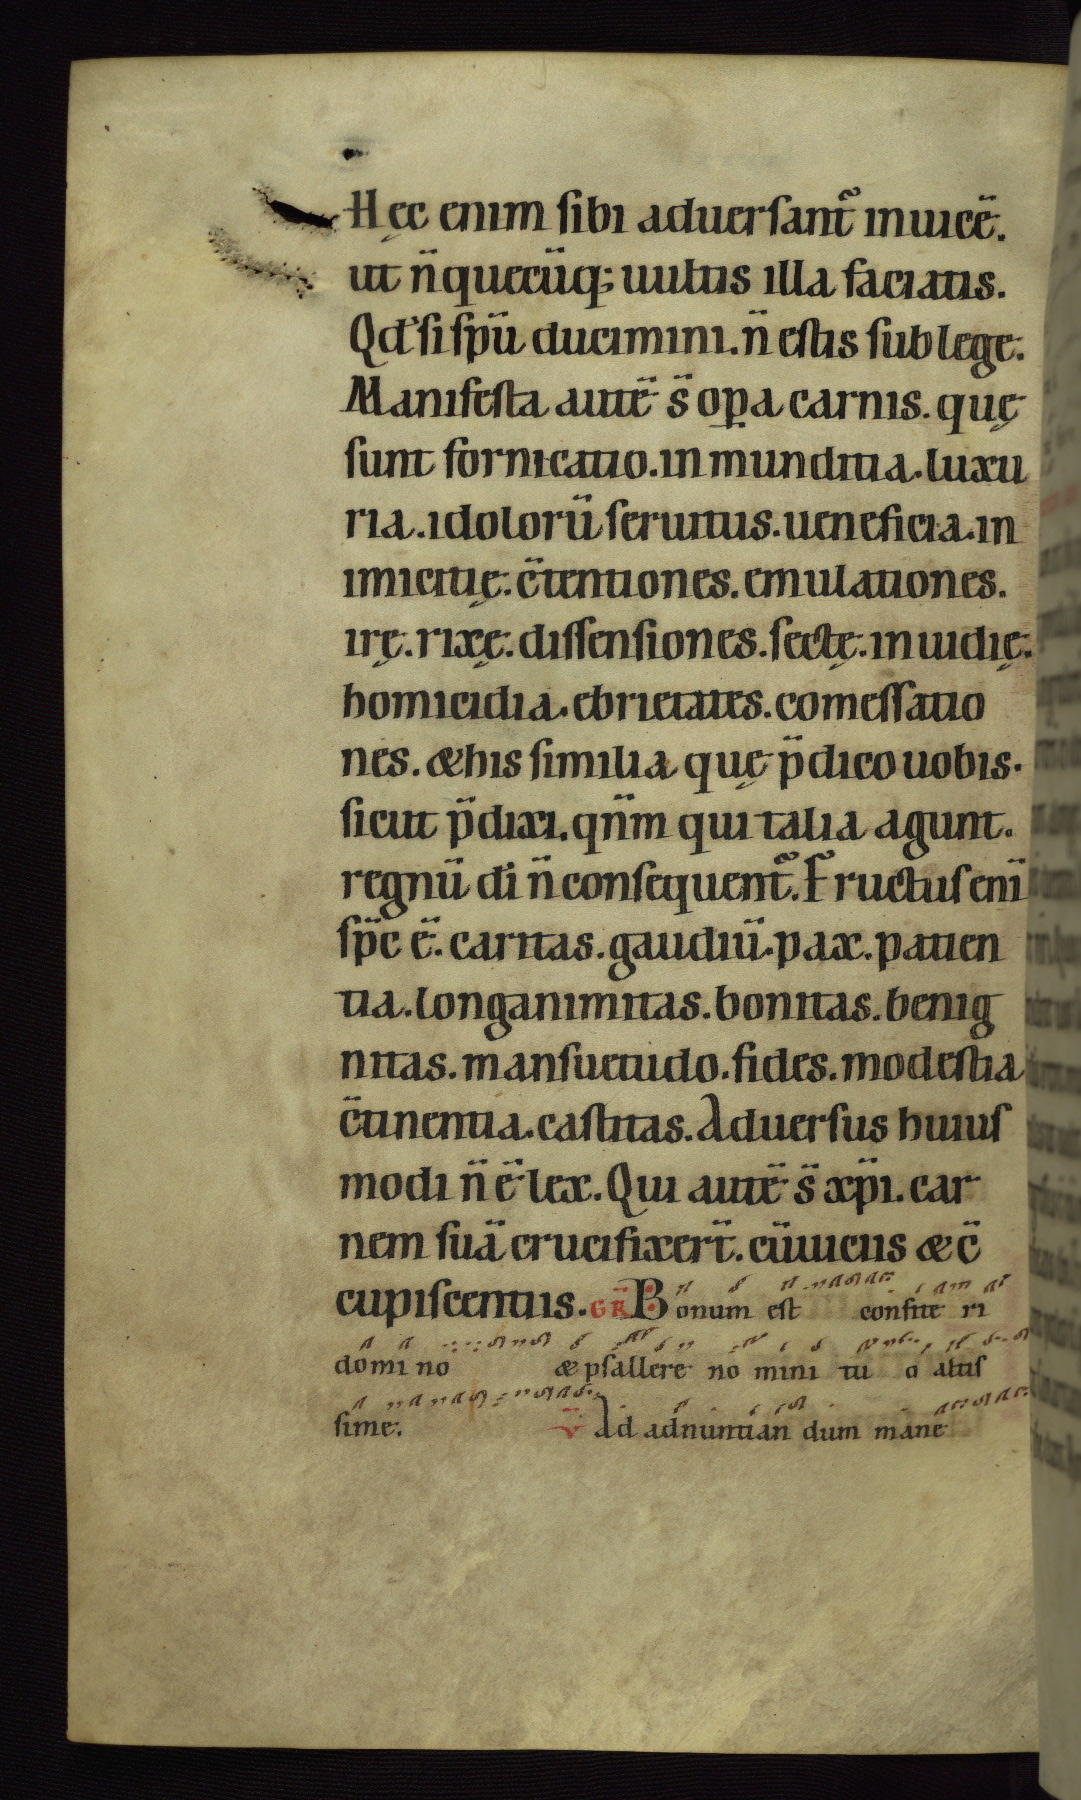 Hęc enim ſibi aduerſant᷑ inuicē.
ut n̄ quecūq; uultis illa faciatis.
Qd' ſi ſpū ducimini. n̄ eſtis ſub lege.
Manifeſta autē s̄ oꝑa carnis. quę
ſunt fornicatio. inmunditia. luxu
ria. idolorū ſeruitus. ueneficia. in
imicitię. c̄tentiones. emulationes.
irę. rixę. diſſenſiones. ſectę. inuidię.
homicidia. ebrietates. comeſſatio
nes. & his ſimilia quę p̄dico uobis.
ſicut p̄dixi. qn̄m qui talia agunt.
regnū dī n̄ conſequent᷑. Fructuſ enī
ſpc̄ ē. caritas. gaudiū. pax. patien
tia. longanimitas. bonitas. benig
nitas. manſuetudo. fides. modeſtia
c̄tinentia. caſtitas. Aduerſus huiuſ
modi n̄ ē lex. Qui autē s̄ xp̄i. car
nem ſuā crucifixer̄t. cū uiciis & c̄
cupiſcentiis. GR̄ Bonum eſt confite ri
domi no & pſallere no mini tu o altiſ
ſime. V̄ Ad adnuntian dum mane